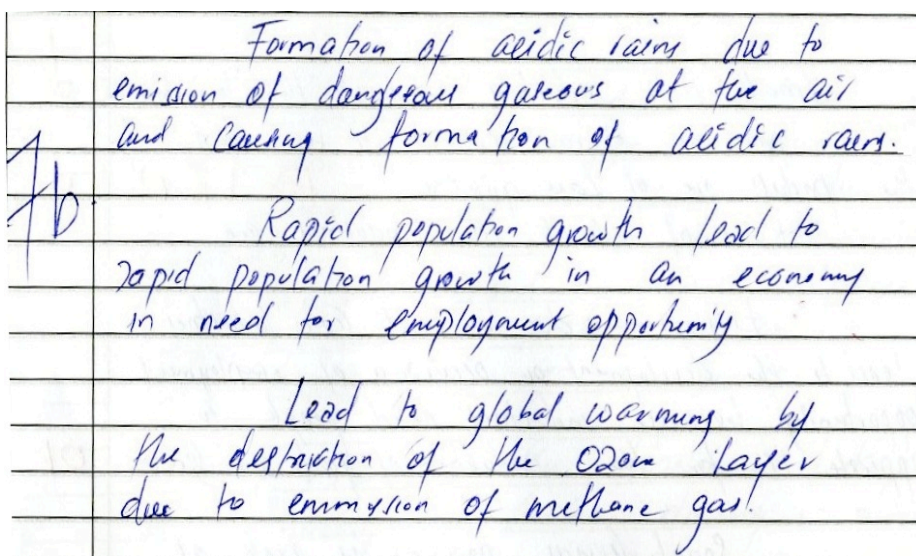 Formation of acidic rains due to
emission of dangerous gaseous at the air
and causing formation of acidic rains.
7b.
Rapid population growth lead to
rapid population growth in an economy
in need for employment opportunity
Lead to global warmning by
the destruction of the Ozone Layer
due to emmysion of methane gas.